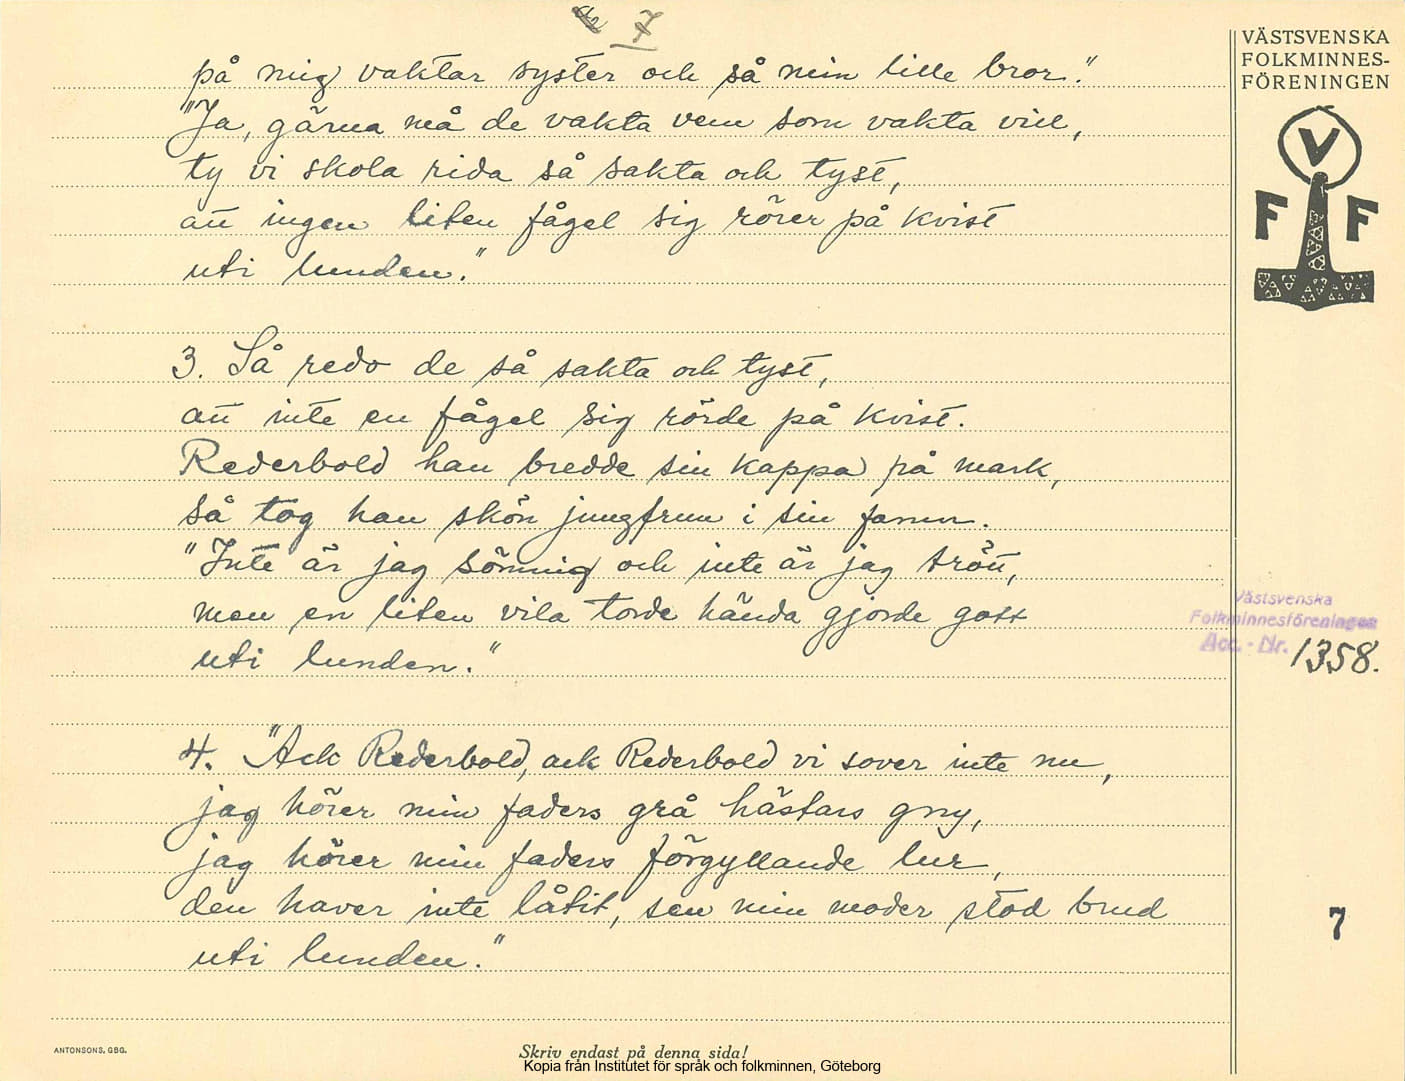 7
på mig vaktar syster och så min lille bror."
"Ja, gärna må de vakta vem som vakta vill,
ty vi skola rida så sakta och tyst,
att ingen liten fågel sig rörer på kvist
uti lunden."
3. Så redo de så sakta och tyst,
att inte en fågel sig rörde på kvist.
Rederbold han bredde sin kappa på mark,
så tog han skön jungfrun i sin famn.
"Inte är jag sömnig och inte är jag trött,
men en liten vila torde hända gjorde gott
uti lunden."
4. "Ack Rederbold, ack Rederbold vi sover inte nu,
jag hörer min faders grå hästars gny,
jag hörer min faders förgyllande lur,
den haver inte låtit, sen min moder stod brud
uti lunden."
VÄSTSVENSKA
FOLKMINNES-
FÖRENINGEN
V
F F
Västsvenska
Folkminnesföreningen
Acc. - Nr. 1358.
7
ANTONSONS, GBG.
Skriv endast på denna sida!
Kopia från Institutet för språk och folkminnen, Göteborg